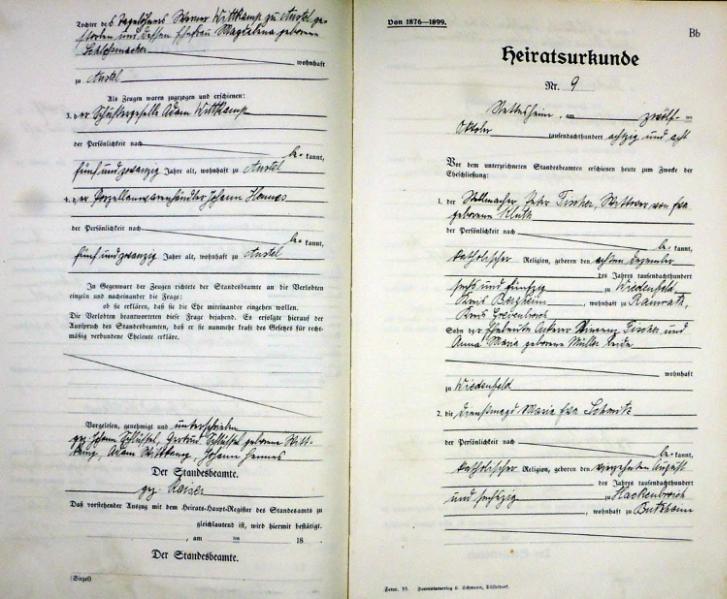 Tochter des Tagelöhners Werner Wittkamp zu Anstel ge-
storben und dessen Ehefrau Magdalena geborene
Schlossmacher
wohnhaft
zu Anstel
Als Zeugen waren zugezogen und erschienen:
3. der Adam Wittkamp
der Persönlichkeit nach
be kannt,
fünf und zwanzig Jahre alt, wohnhaft zu Anstel
4. der Porzellanwarenhändler Johann Hennes
der Persönlichkeit nach
be kannt,
fünf und zwanzig Jahre alt, wohnhaft zu Anstel
In Gegenwart der Zeugen richtete der Standesbeamte an die Verlobten
einzeln und nacheinander die Frage:
ob sie erklären, daß sie die Ehe miteinander eingehen wollen.
Die Verlobten beantworteten diese Frage bejahend. Es erfolgte hierauf der
Ausspruch des Standesbeamten, daß er sie nunmehr kraft des Gesetzes für recht-
mäßig verbundene Eheleute erkläre.
Vorgelesen, genehmigt und unterschrieben
gez. Johann Schlüssel, Gertrud Schlüssel geborene Witt-
kamp, Adam Wittkamp, Johann Hennes
Der Standesbeamte.
gez. Keiser
Daß vorstehender Auszug mit dem Heirats-Haupt-Register des Standesamts zu
gleichlautend ist, wird hiermit bestätigt.
, am ten 18
Der Standesbeamte.
(Siegel)
Von 1876—1899.
Bb
Heiratsurkunde
Nr. 9
Nettesheim, am zwölf-ten
Oktober tausendachthundert achtzig und acht
Vor dem unterzeichneten Standesbeamten erschienen heute zum Zwecke der
Eheschließung:
1. der Stellmacher Peter Fischer, Wittwer von
geborene Kluth
der Persönlichkeit nach
be kannt,
katholischer Religion, geboren den achten Dezember
des Jahres tausendachthundert
sechs und fünfzig zu Wiedenfeld
Kreis Bergheim, wohnhaft zu Ramrath,
Kreis Grevenbroich
Sohn der Eheleute Ackerer Fischer und
Anna Maria geborene Müller beide
wohnhaft
zu Wiedenfeld
2. die Dienstmagd Maria Schmitz
der Persönlichkeit nach
be kannt,
katholischer Religion, geboren den vierzehnten August
des Jahres tausendachthundert
und sechzig zu Hackenbroich
, wohnhaft zu Butzheim